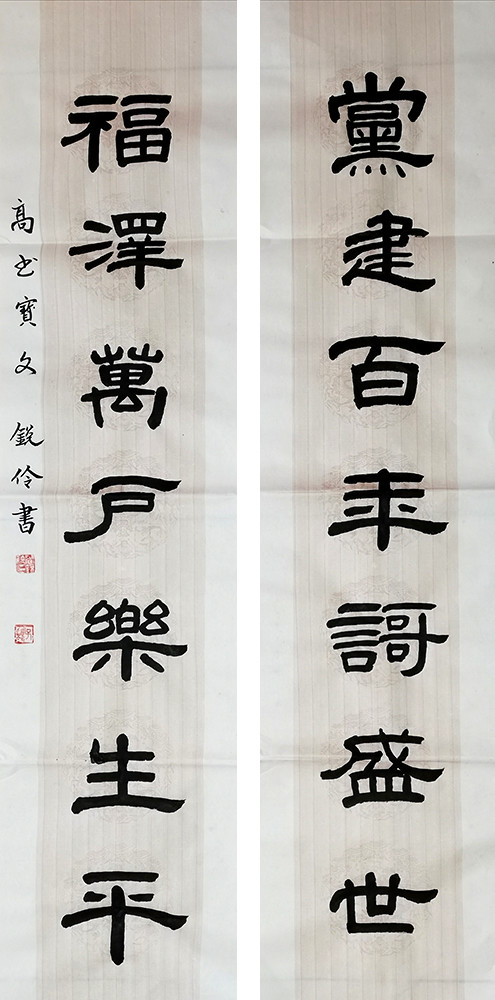 黨建百年謌盛世
福澤萬户樂生平
高书寶文 銳伶書